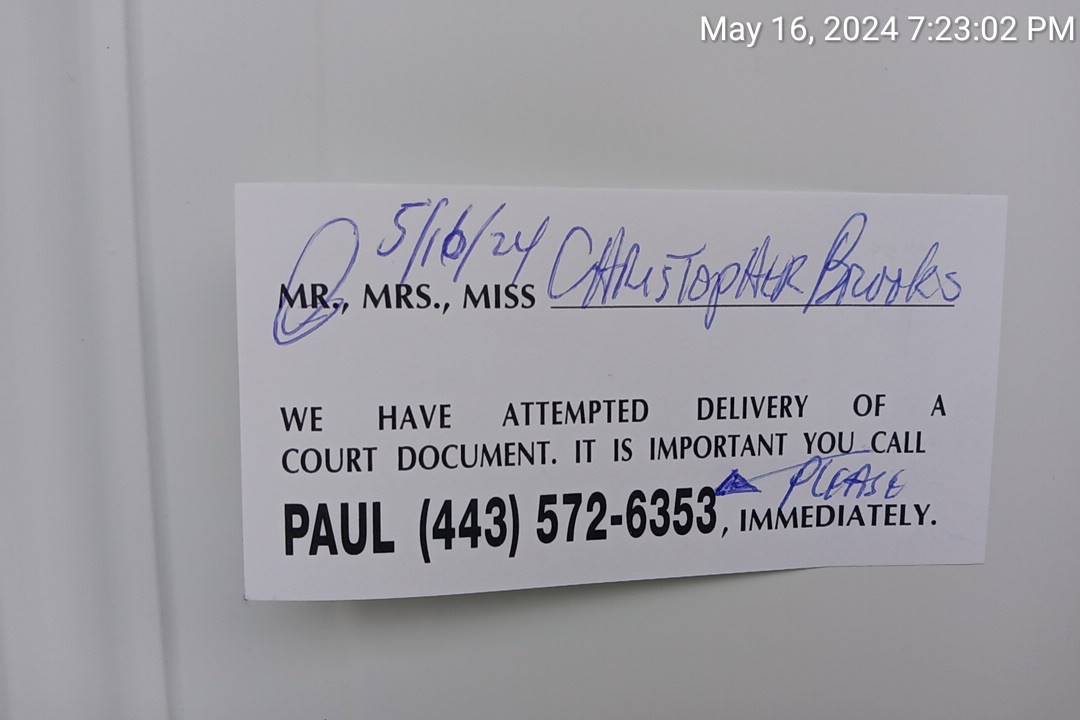 May 16, 2024 7:23:02 PM
5/16/24
MR., MRS., MISS CHRISTOPHER Brooks
WE HAVE ATTEMPTED DELIVERY OF A
COURT DOCUMENT. IT IS IMPORTANT YOU CALL
PLEASE
PAUL (443) 572-6353, IMMEDIATELY.